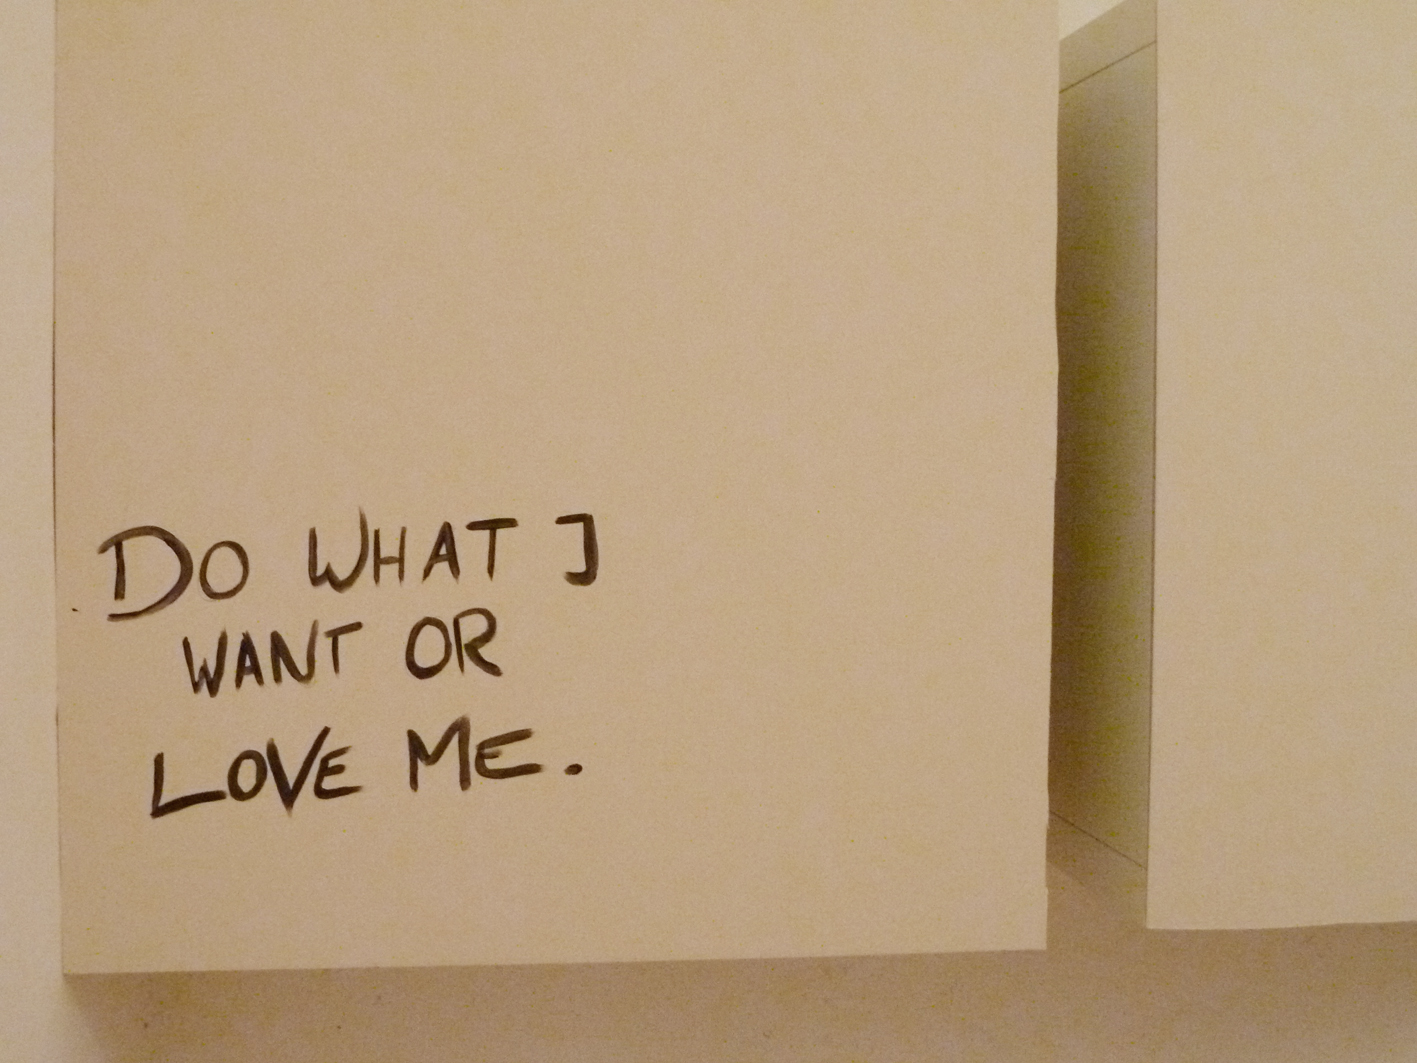 DO WHAT I
WANT OR
LOVE ME.